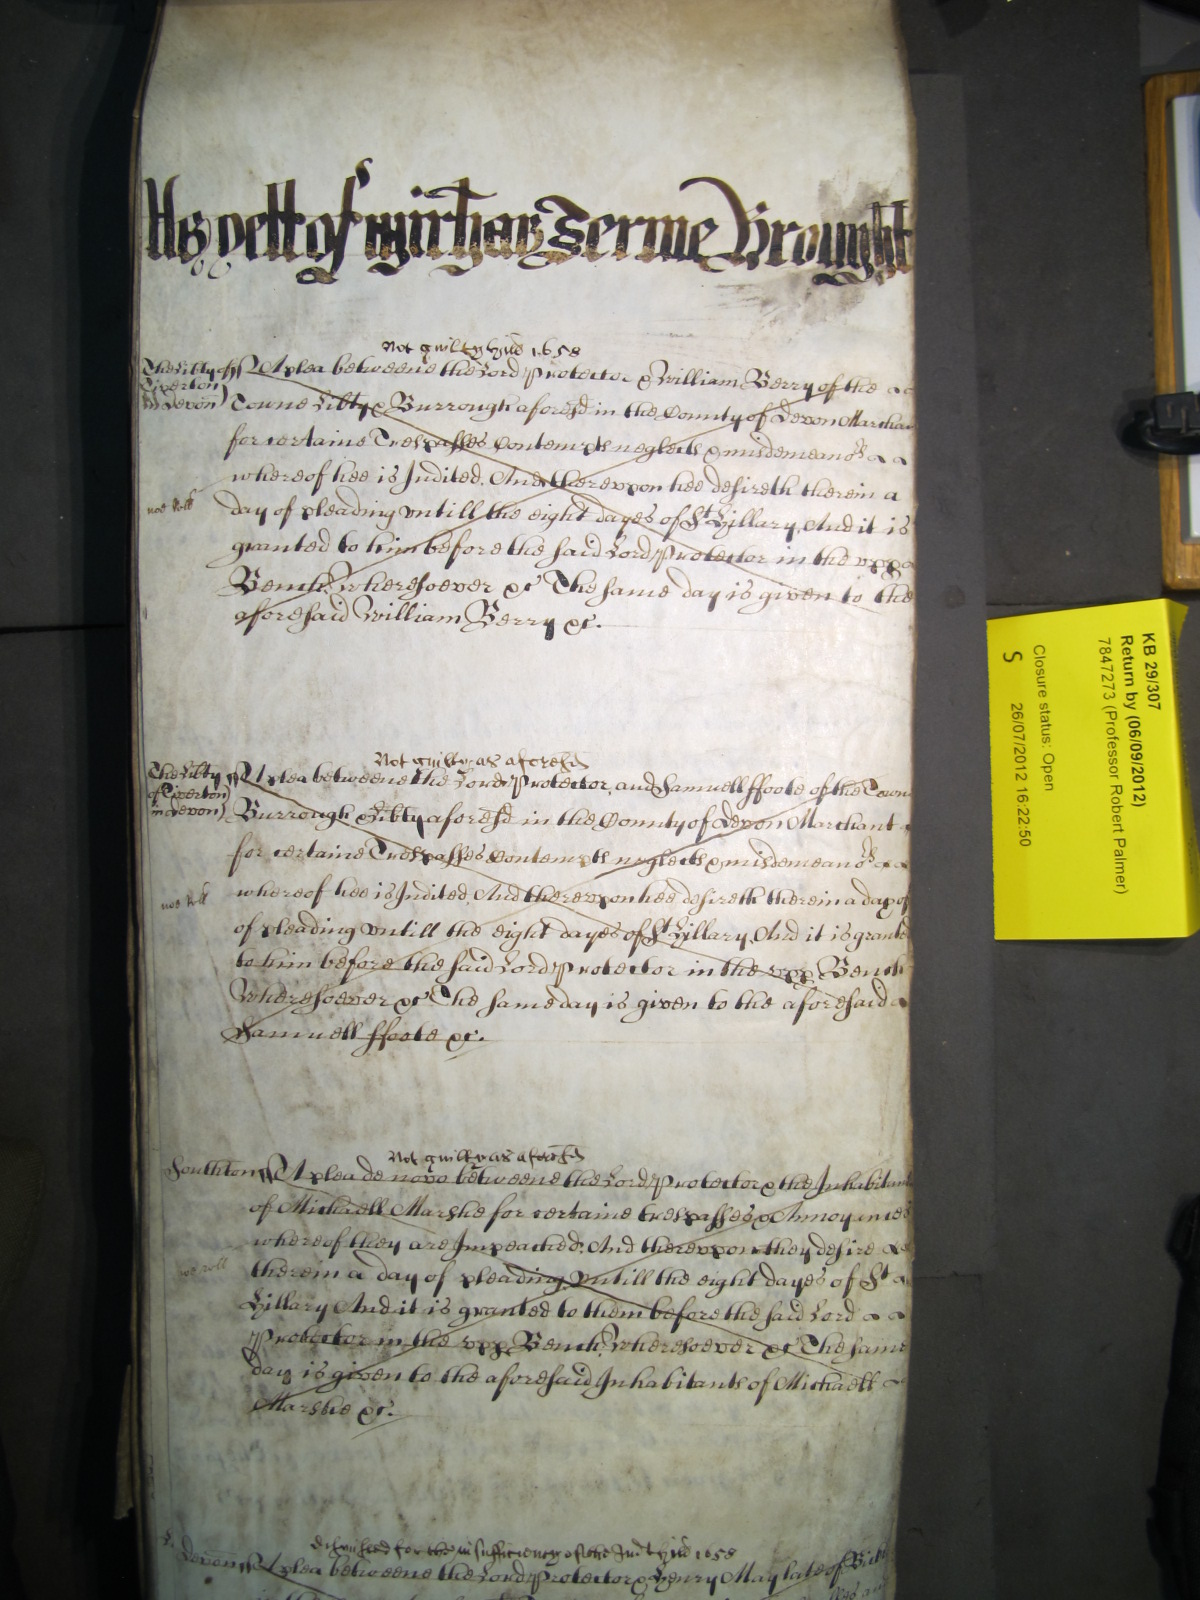 As yett of Mich'as Terme Brought
Not guilty Hill 1658
The Libty of ss A plea betweene the Lord Protector & William Berry of the
Tiverton)
in Devon) Towne Libty & Burrough aforesd in the County of Devon Marchan
for certaine Trespasses Contempts neglects & misdemeanors
whereof hee is Indited. And therevpon hee desireth therein a
noe roll day of pleading vntill the eight dayes of St Hillary, And it is
granted to him before the said Lord Protector in the vpp
Bench Wheresoever &c The same day is given to the
aforesaid William Berry &c.
Not guilty as aforesd
The Libty ss A plea betweene the Lord Protector, and Samuell ffoote of the Towne
of Tiverton)
in Devon) Burrough Libty aforesd in the County of Devon Marchant
for certaine Trespasses contempts neglects & misdemeanors
whereof hee is Indited, And therevpon hee desireth therein a day of
noe roll
of pleading vntill the eight dayes of St Hillary, And it is grante
to him before the said Lord Protector in the vpp Bench
Wheresoever &c The same day is given to the aforesaid
Samuell ffoote &c.
Not guilty as aforesd
Southton ss A plea de novo betweene the Lord Protector & the Inhabitant
of Michaell Marshe for certaine trespasses & Annoyances
whereof they are Impeached. And therevpon they desire
noe roll therein a day of pleading vntill the eight dayes of St
Hillary And it is granted to them before the said Lord
Protector in the vpp Bench Wheresoever &c The same
day is given to the aforesaid Inhabitants of Michaell
Marshe &c.
for the insufficiency of the Indt Hill 1658
Devon ss A plea betweene the Lord Protector & Henry May late of
KB 29/307
Return by (06/09/2012)
7847273 (Professor Robert Palmer)
Closure status: Open
S 26/07/2012 16:22:50